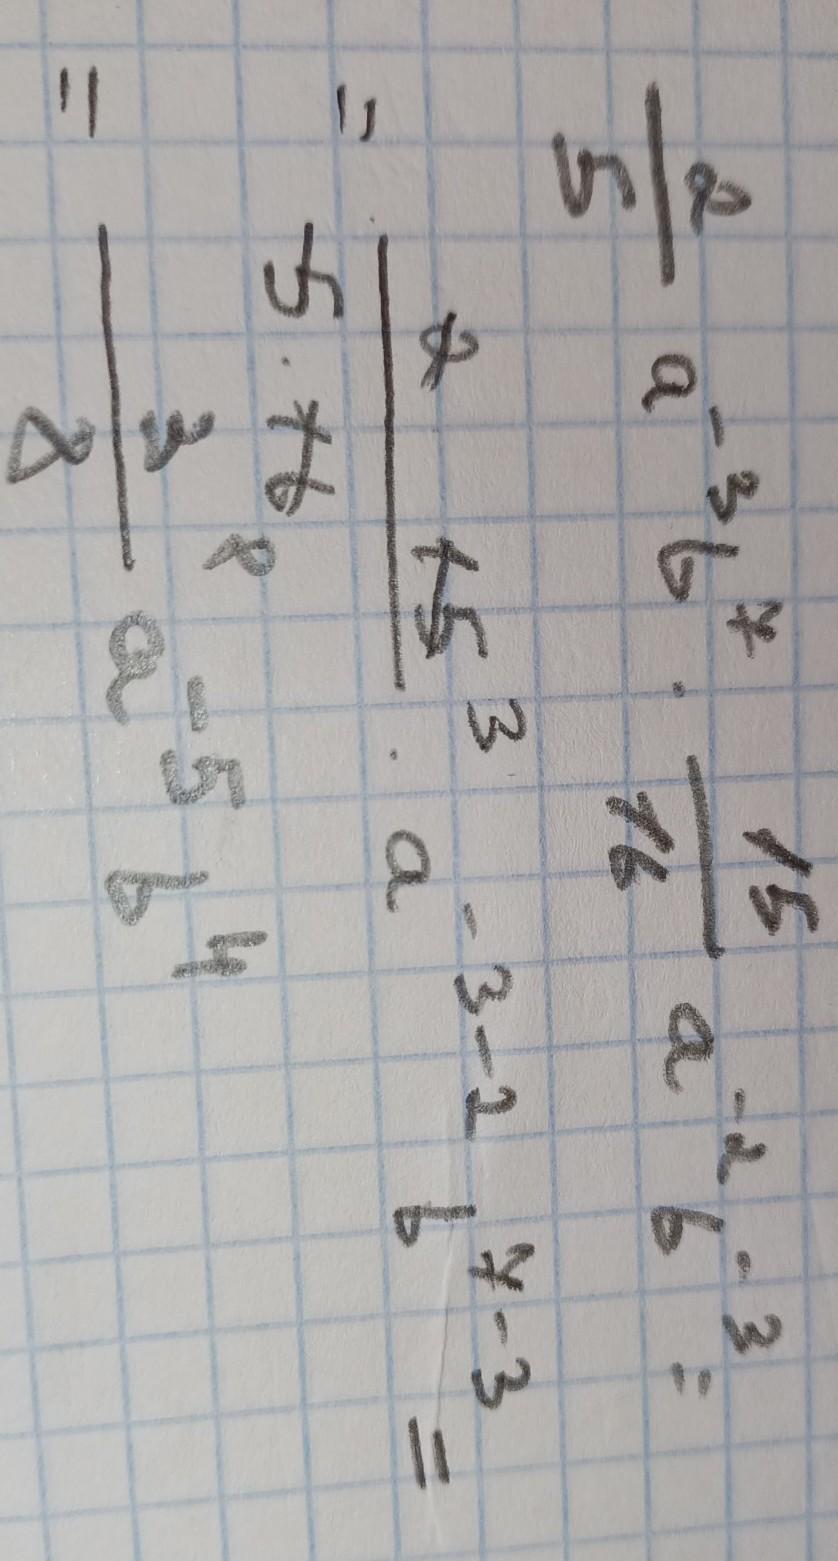 2/5 a^-3 b^7 · 15/16 a^-2 b^-3 =
= (2 15 3)/(5 · 16 8) · a^-3-2 b^7-3 =
= 3/8 a^-5 b^4